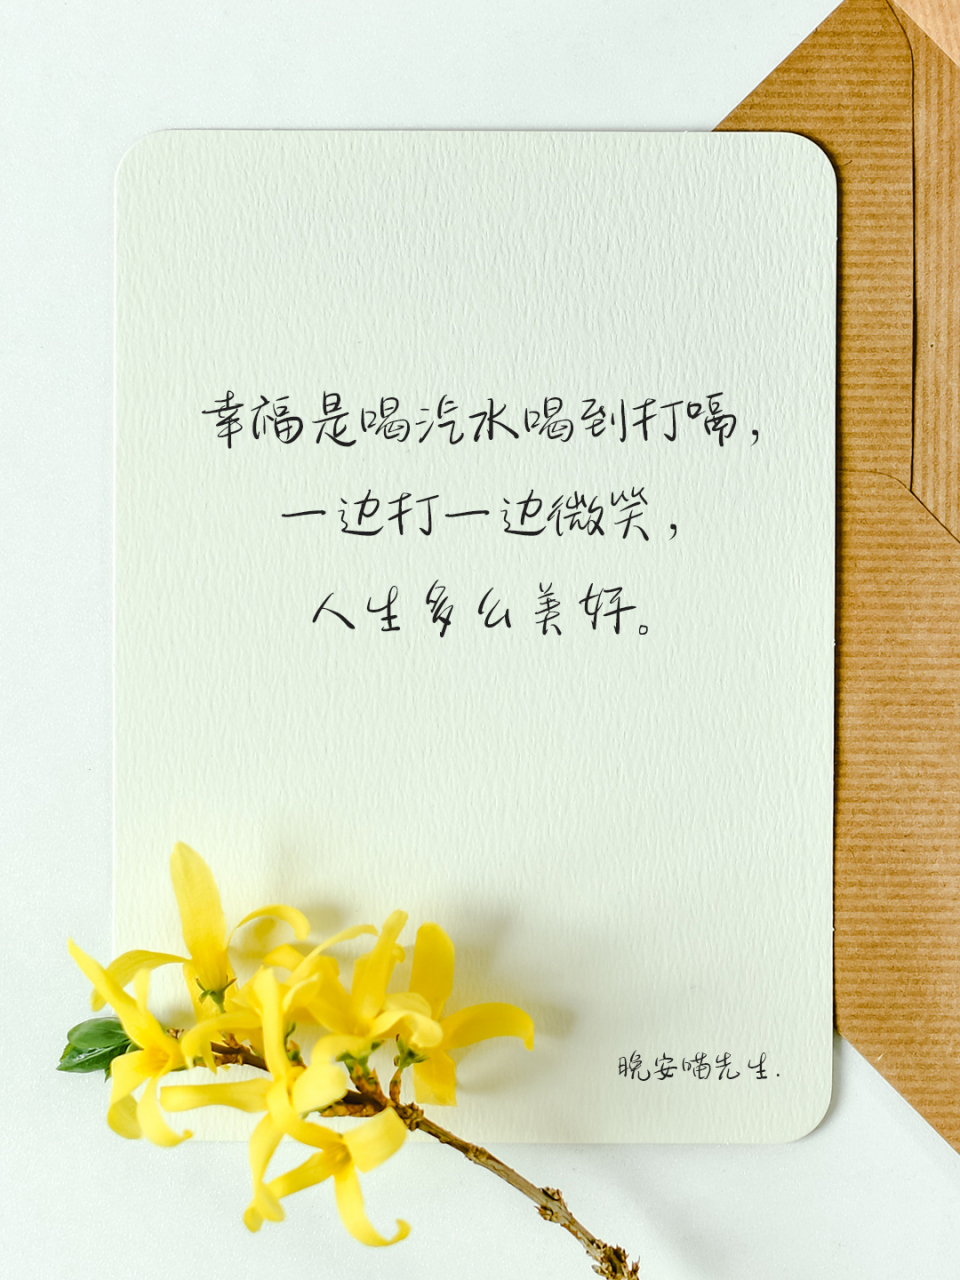 幸福是喝汽水喝到打嗝，
一边打一边微笑，
人生多么美好。
晚安喵先生.